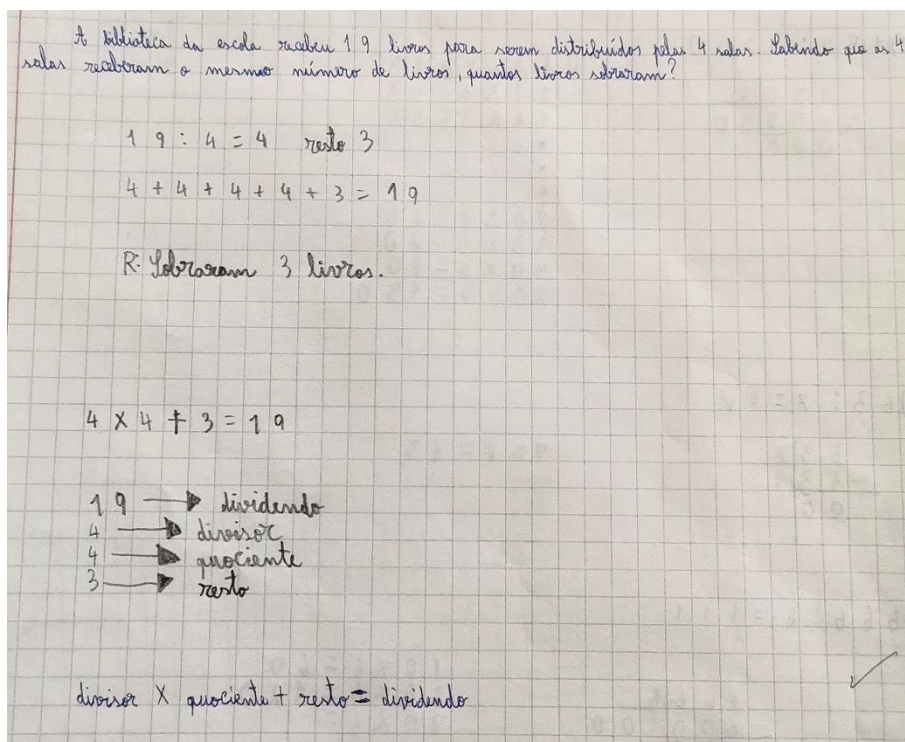 A biblioteca da escola recebeu 19 livros para serem distribuídos pelas 4 salas. Sabendo que as 4
salas receberam o mesmo número de livros, quantos livros sobraram?
19 : 4 = 4 resto 3
4 + 4 + 4 + 4 + 3 = 19
R: Sobraram 3 livros.
4 X 4 + 3 = 19
19 → dividendo
4 → divisor
4 → quociente
3 → resto
divisor X quociente + resto = dividendo